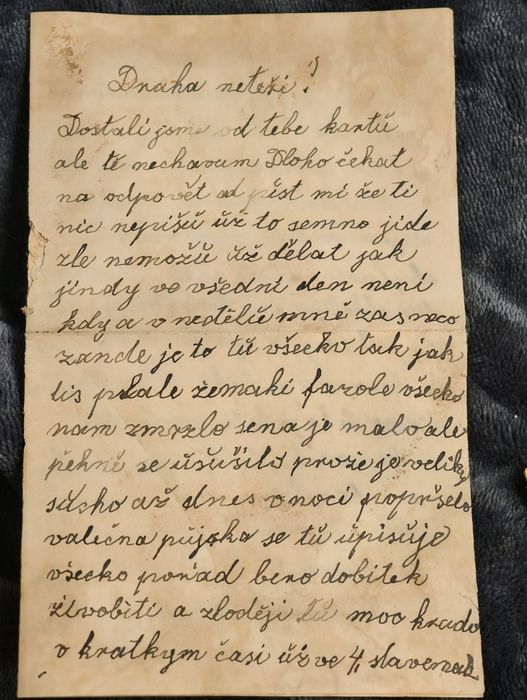 Draha neteři!
Dostali jsme od tebe kartů
ale tě nechavam Dloho čekat
na odpovět od půst mi že ti
nic nepišů ůž to semno jide
zle nemožů ůž dělat jak
jindy ve všední den není
kdy a v nedělů mně zas neco
zande je to tů všecko tak jak
tis psala žemaki fazole všecko
nam zmrzlo sena je malo ale
pěkně se ůsůšilo prože je veliky
sůcho až dnes v noci popršelo
valečna půjčka se tů ůpisůje
všecko pořad bero dobitek
živobiti a zloději tů moc krado
v kratkym časi ůž ve 4,